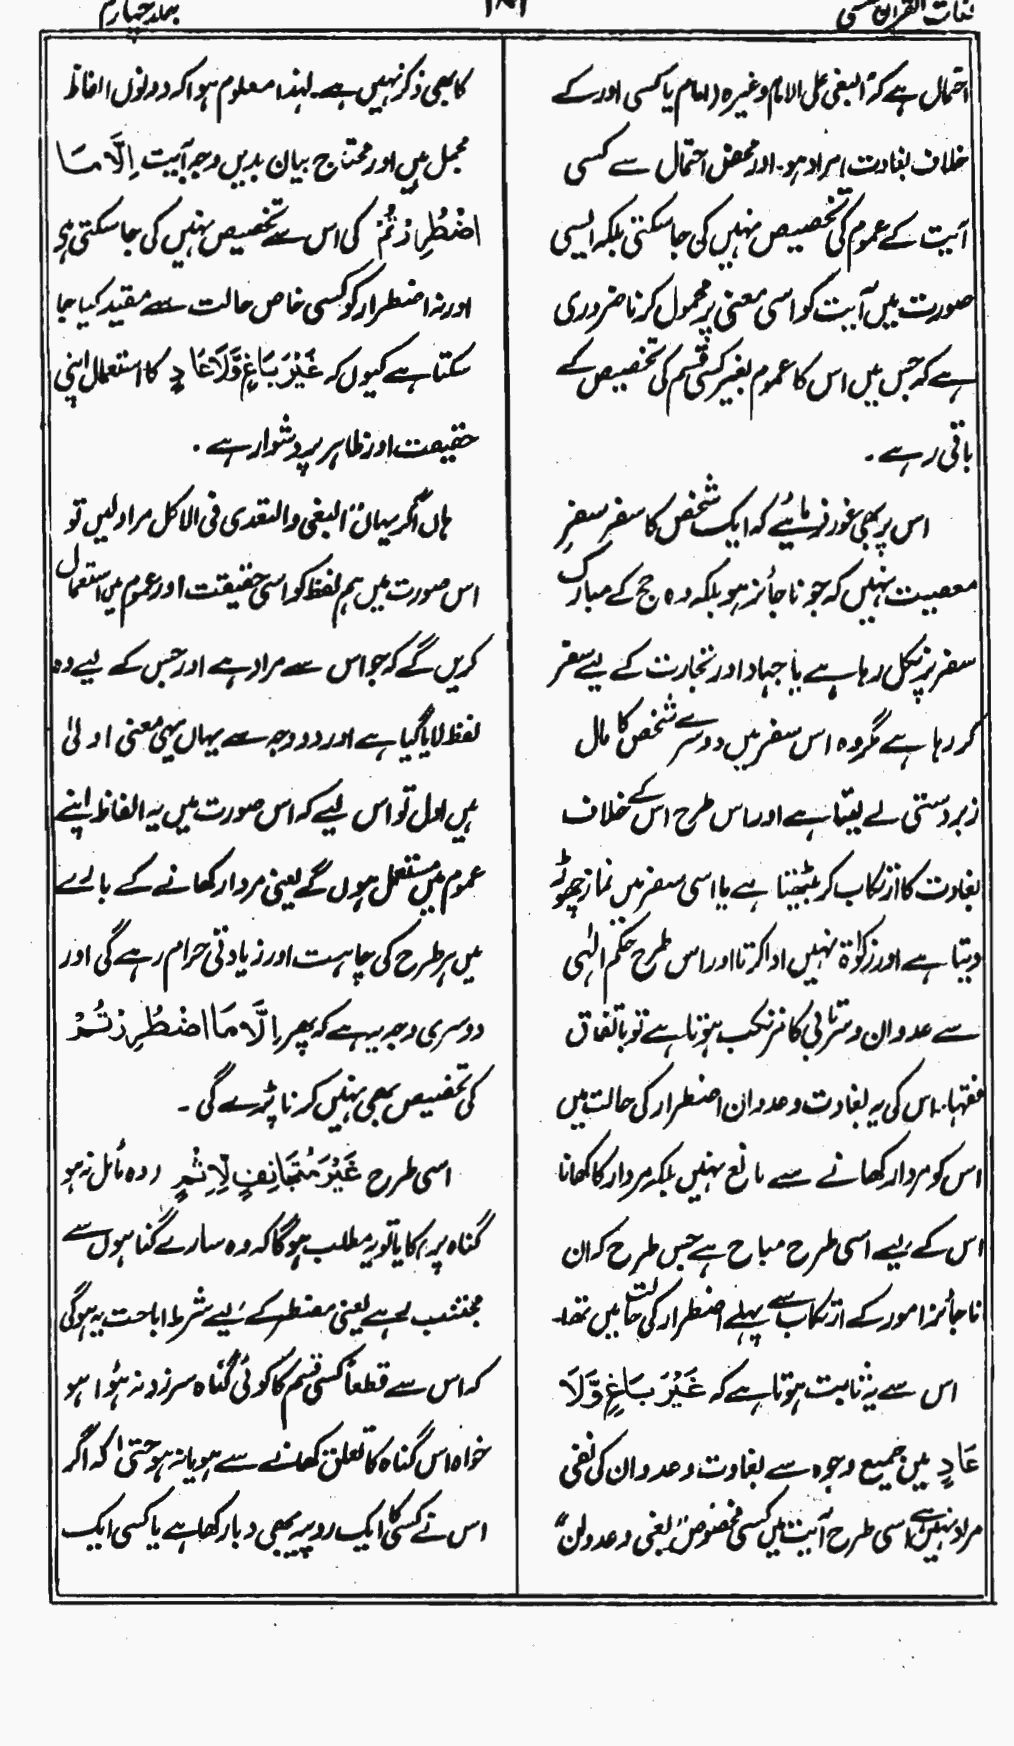 لغات القرآن
جلد چہارم
احتمال ہے کہ "البغی علی الامام وغیرہ (امام یا کسی اور کے
خلاف بغاوت) مراد ہو۔ اور محض احتمال سے کسی
آیت کے عموم کی تخصیص نہیں کی جا سکتی بلکہ ایسی
صورت میں آیت کو اسی معنی پر محمول کرنا ضروری
ہے کہ جس میں اس کا عموم بغیر کسی قسم کی تخصیص کے
باقی رہے۔
اس پر بھی غور فرمائیے کہ ایک شخص کا سفر سفرِ
معصیت نہیں کہ جو ناجائز ہو بلکہ وہ حج کے مبارک
سفر پر نکل رہا ہے یا جہاد اور تجارت کے لیے سفر
کر رہا ہے مگر وہ اس سفر میں دوسرے شخص کا مال
زبردستی لے لیتا ہے اور اس طرح اس کے خلاف
بغاوت کا ارتکاب کر بیٹھتا ہے یا اسی سفر میں نماز چھوڑ
دیتا ہے اور زکوٰۃ نہیں ادا کرتا اور اس طرح حکم الٰہی
سے عدوان و سرتابی کا مرتکب ہوتا ہے تو باتفاق
فقہاء اس کی یہ بغاوت و عدوان اضطرار کی حالت میں
اس کو مردار کھانے سے مانع نہیں بلکہ مردار کا کھانا
اس کے لیے اسی طرح مباح ہے جس طرح کہ ان
ناجائز امور کے ارتکاب سے پہلے اضطرار کی حالت میں تھا۔
اس سے یہ ثابت ہوتا ہے کہ غَیْرَ بَاغٍ وَّلَا
عَادٍ میں جمیع وجوہ سے بغاوت و عدوان کی نفی
مراد نہیں ہے اسی طرح آیت میں کسی مخصوص "بغی و عدوان"
کا بھی ذکر نہیں ہے۔ لہذا معلوم ہوا کہ دونوں الفاظ
مجمل ہیں اور محتاج بیان بدیں وجہ آیت اِلَّا مَا
اضْطُرِرْتُمْ کی اس سے تخصیص نہیں کی جا سکتی ہے
اور نہ اضطرار کو کسی خاص حالت سے مقید کیا جا
سکتا ہے کیوں کہ غَیْرَ بَاغٍ وَّلَا عَادٍ کا استعمال اپنی
حقیقت اور ظاہر پر دشوار ہے۔
ہاں اگر یہاں "البغی والتعدی فی الاکل مراد لیں تو
اس صورت میں ہم لفظ کو اسی حقیقت اور عموم میں استعمال
کریں گے کہ جو اس سے مراد ہے اور جس کے لیے وہ
لفظ لایا گیا ہے اور دو وجہ سے یہاں یہی معنی اولیٰ
ہیں اول تو اس لیے کہ اس صورت میں یہ الفاظ اپنے
عموم میں مستعمل ہوں گے یعنی مردار کھانے کے بارے
میں ہر طرح کی چاہت اور زیادتی حرام رہے گی اور
دوسری وجہ یہ ہے کہ پھر اِلَّا مَا اضْطُرِرْتُمْ
کی تخصیص بھی نہیں کرنا پڑے گی۔
اسی طرح غَیْرَ مُتَجَانِفٍ لِّاِثْمٍ (وہ مائل نہ ہو
گناہ پر) کا یا تو یہ مطلب ہوگا کہ وہ سارے گناہوں سے
مجتنب ہے یعنی مضطر کے لیے شرط اباحت یہ ہوگی
کہ اس سے قطعاً کسی قسم کا کوئی گناہ سرزد نہ ہوا ہو
خواہ اس گناہ کا تعلق کھانے سے ہو یا نہ ہو حتیٰ کہ اگر
اس نے کسی کا ایک روپیہ بھی دبا رکھا ہے یا کسی ایک